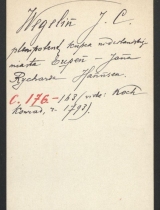 Wegelin J. C.
plenipotent kupca niderlandzkiego
miasta Eupen – Jana
Rycharda – Hansena.
C. 176. – 163 / vide: Koch
Konrad, r. 1793/.